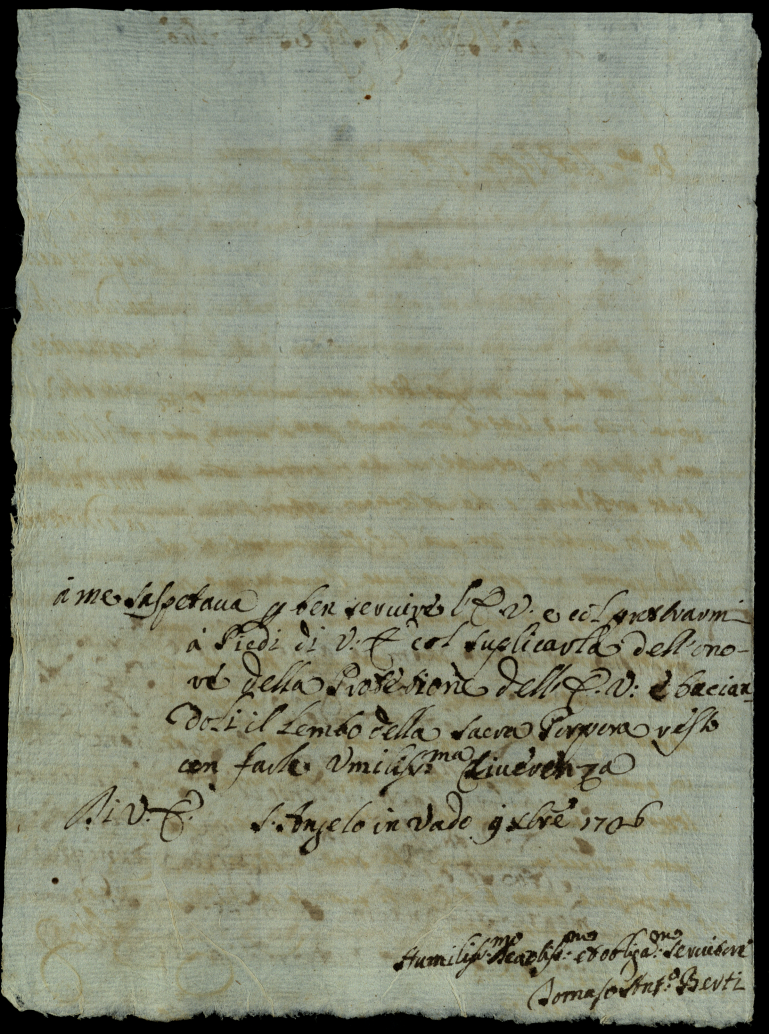 à me saspetava p ben servire l'E. V. e col prostrarmi
à Piedi di V. E. col suplicarla dell'ono-
re della Protetione dell'E. V: e bacian-
doli il Lembo della sacra Porpora resto
con farle Umiliss.ma Riverenza
Di V. E. S. Angelo in Vado 9 xbre 1706
Humiliss.mo et obliga.mo servitore
Tomaso Ant.o Berti